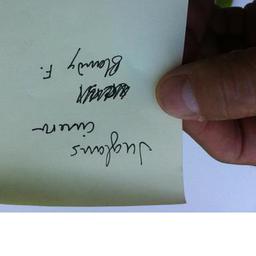 Juglans
Ciner
Blandy F.